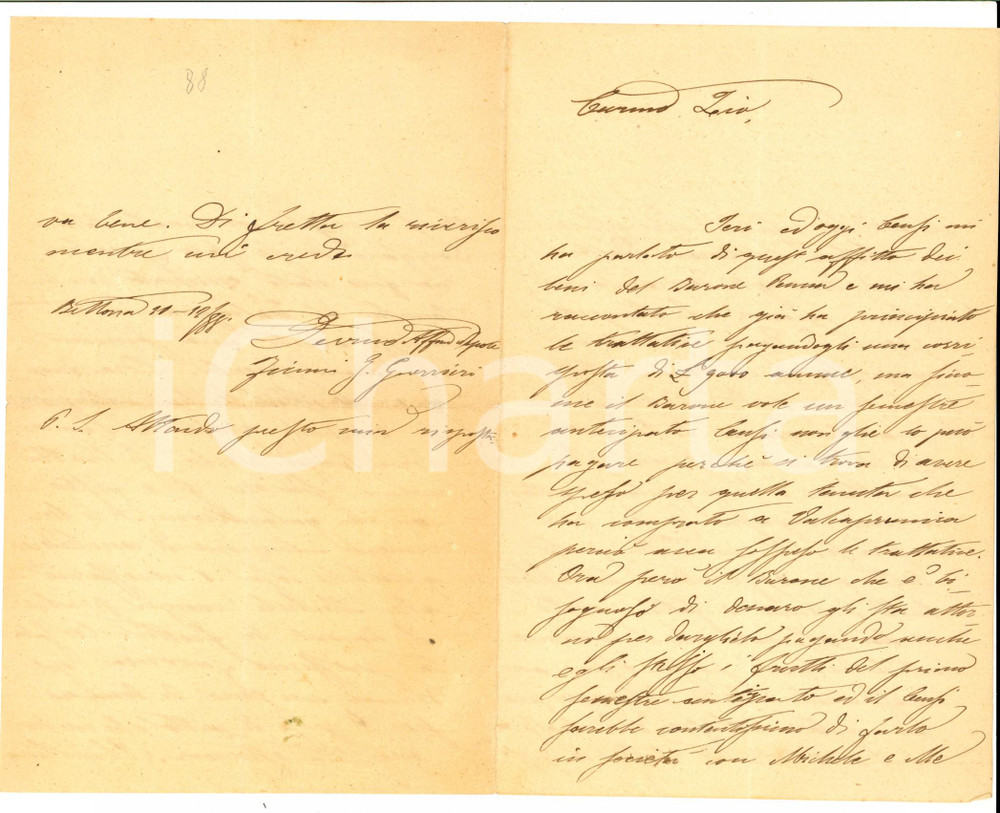 88
va bene. Di fretta la riverisco
mentre mi credo
Bettona 20-12/88.
Devmo Affmo Nipote
G. Guerrieri
P. S. Attendo presto una risposta
Carmo Zio,
Ieri ed oggi Censi mi
ha parlato di quest'affitto dei
beni del Barone e mi ha
raccontato che già ha principiato
le trattative pagandogli una corri-
sposta di annue, ma sicco-
me il Barone vole un semestre
anticipato Censi non glie lo può
pagare perchè si trova di avere
speso per quella tenuta che
ha comprato a
perciò avea sospeso le trattative.
Ora però il Barone che è bi-
sognoso di denaro gli sta attor-
no per darglielo pagando anche
egli stesso i frutti del primo
semestre anticipato ed il Censi
sarebbe contentissimo di farlo
in società con Michele e Me
iCharta